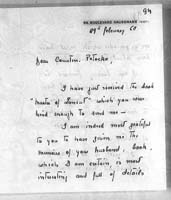 94
BOULEVARD HAUSSMANN
29th february 60
Dear Countess Potocka
I have just received the book
"Master of Lancut" which you were
kind enough to send me –
I am indeed most grateful
to you to have given me the
memoirs of your husband, book,
which I am certain is most
interesting and full of details